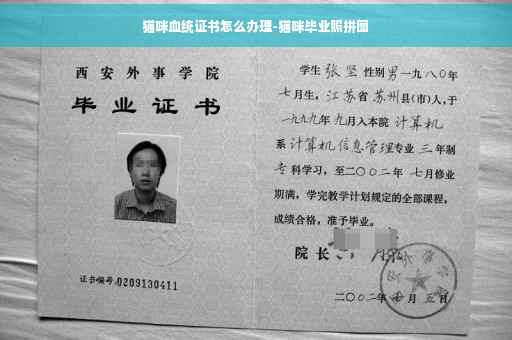 猫咪血统证书怎么办理-猫咪毕业照拼图
西安外事学院
毕业证书
证书编号:0209130411
学生 张坚 性别 男 一九八〇年
七月生，江苏省苏州县(市)人,于
一九九九年九月入本院 计算机
系 计算机信息管理专业 三年制
专科学习，至二〇〇二年 七月修业
期满，学完教学计划规定的全部课程，
成绩合格，准予毕业。
院长
二〇〇二年 月五日